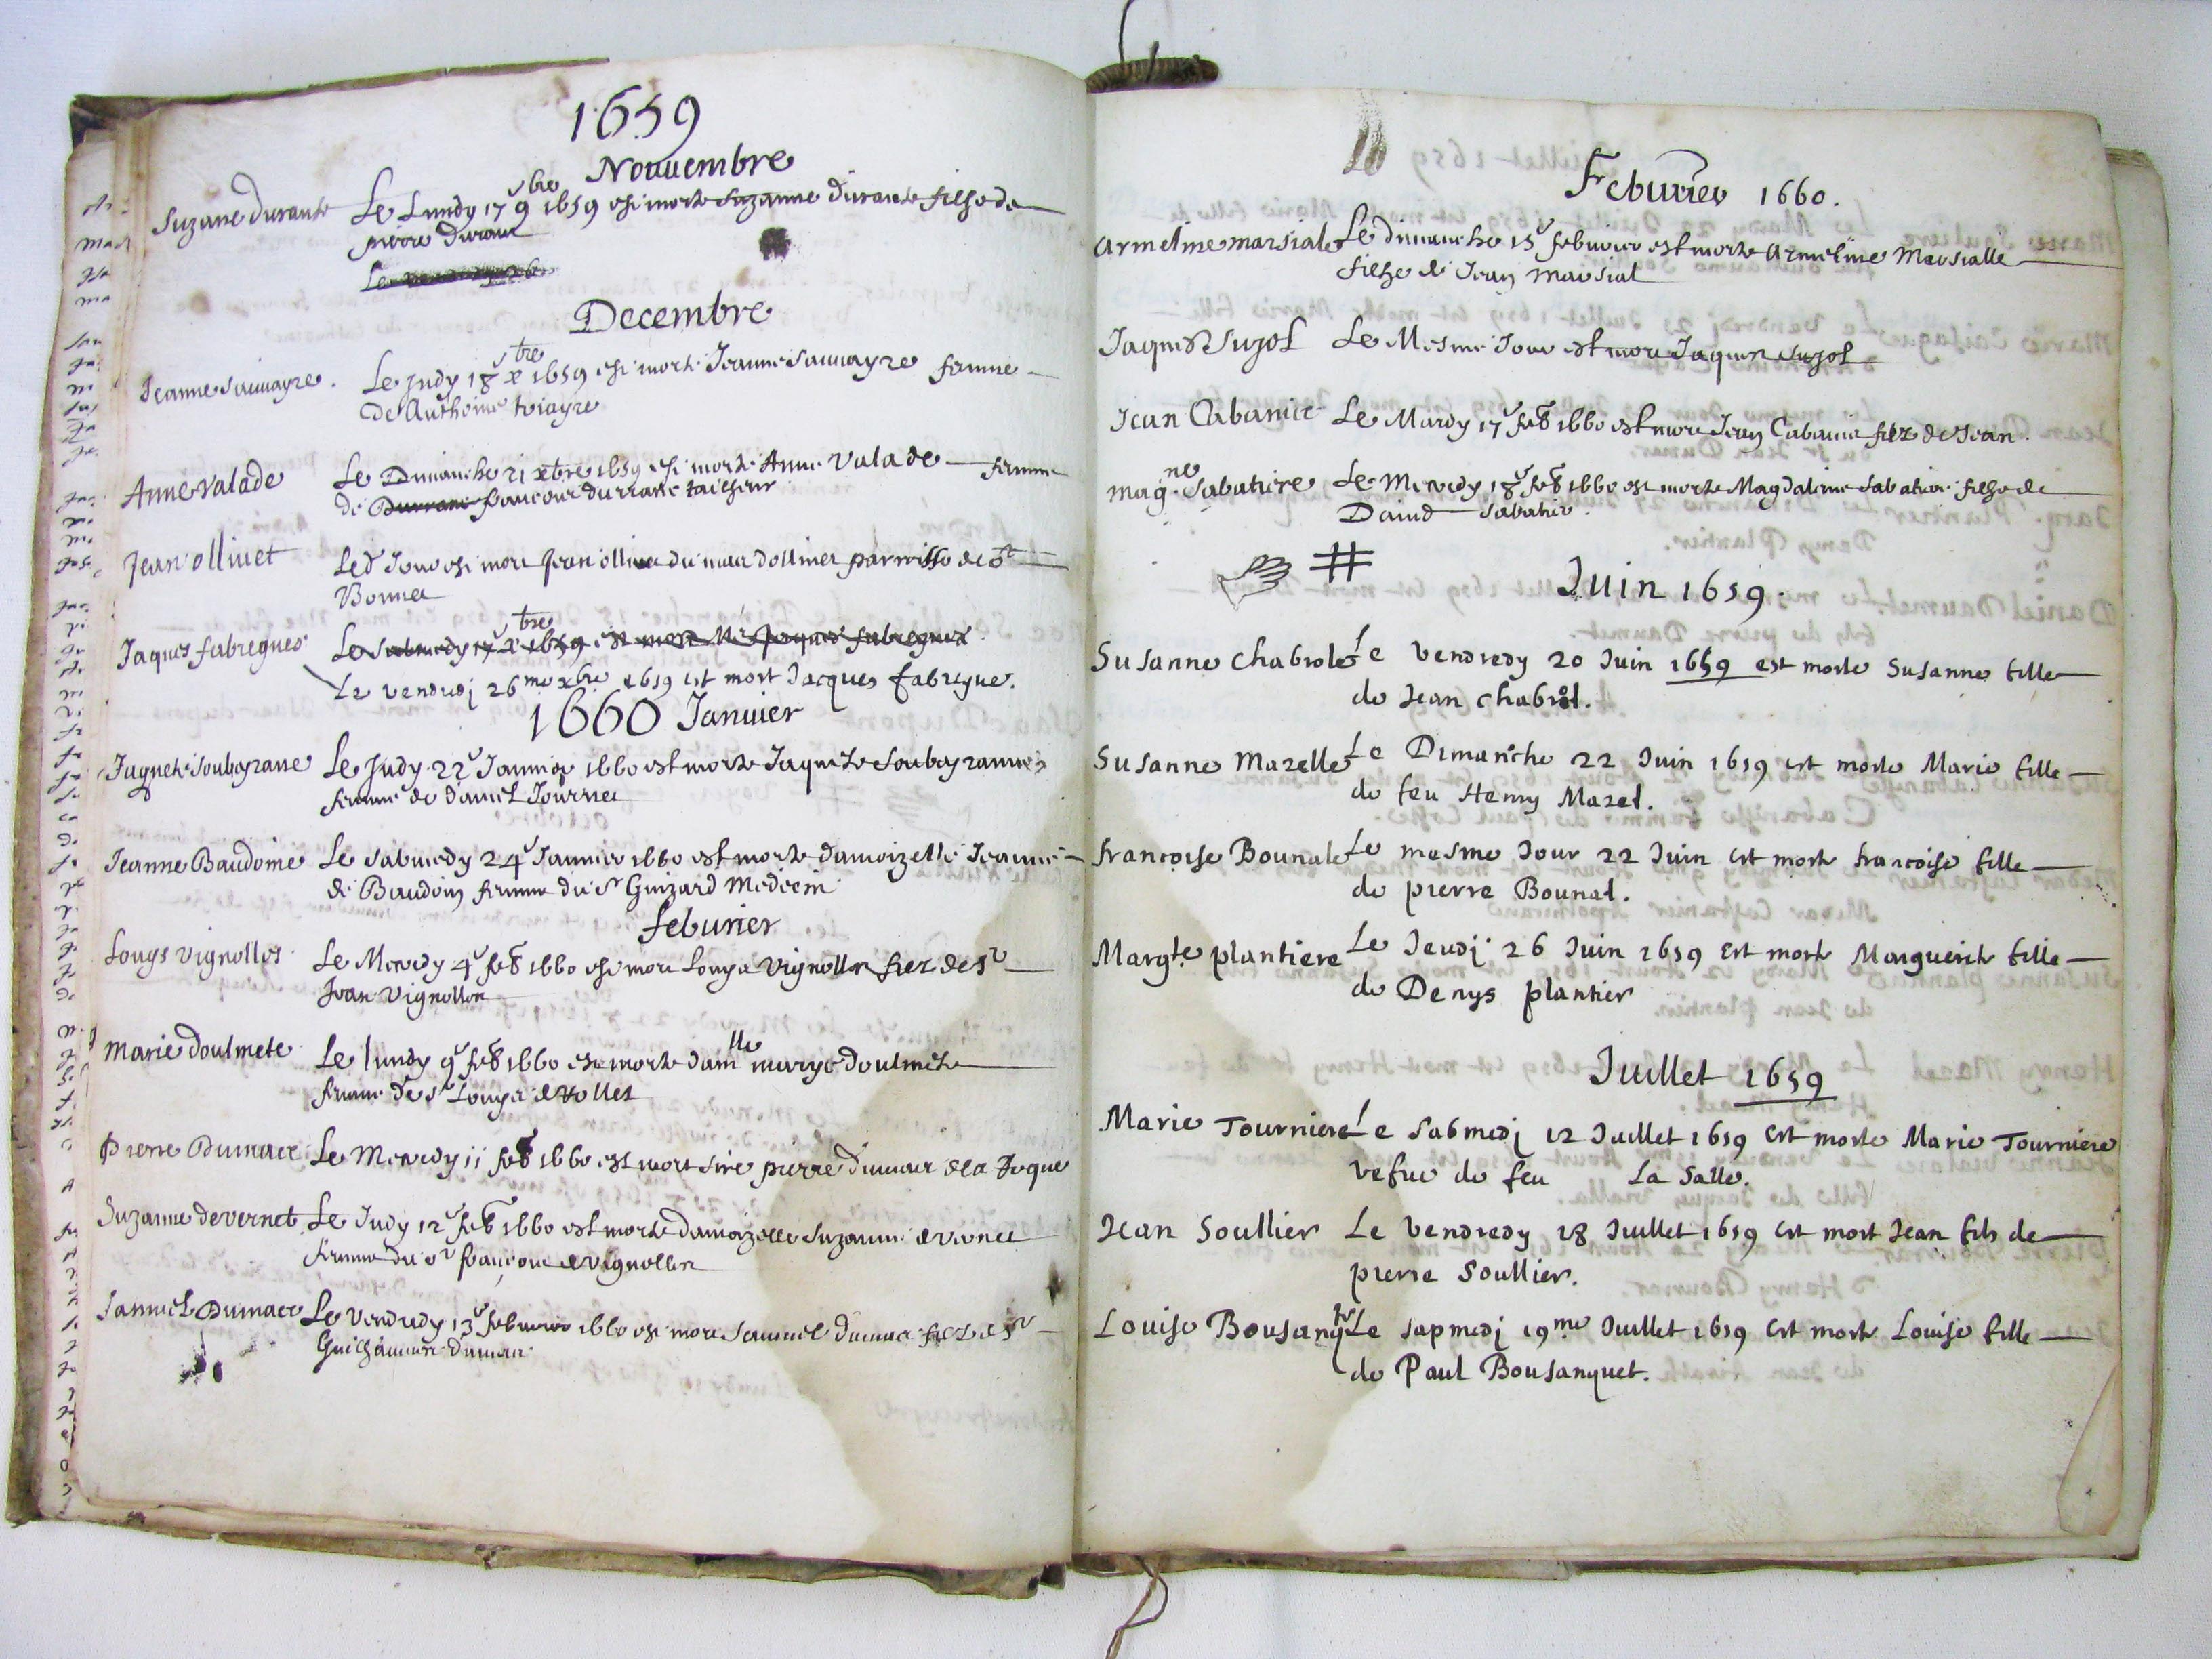 1659
Nouuembre
Suzane durante Le Lundy 17e 9bre 1659 est morte Suzanne durante filhe de
pierre durant
Decembre
Jeanne Sauuayre. Le Judy 18e xbre 1659 est morte Jeanne Sauuayre femme
de Anthoine
Anne Valade Le Dimanche 21 xbre 1659 est morte Anne Valade femme
de Durrane francois durrane tailheur
Jean olliuet Led Jour est mort Jean olliuet du mas dolliuet parroisse de St
Bonnet
Jaques fabregues Le Sabmedy 17e xbre 1659 est mort Mr Jaques fabregues
Le vendredj 26me xbre 1659 est mort Jacques fabregue.
1660 Januier
Jaquete Soubeyrane Le Judy 22e Januier 1660 est morte Jaquete Soubeyranne
femme de daniel Journet
Jeanne Baudoine Le Sabmedy 24e Januier 1660 est morte damoizelle Jeanne
de Baudoin femme du Sr Guizard Medecin
feburier
Louys vignolles Le Mercredy 4e feb 1660 est mort Louys Vignolles filz de Sr
Jean Vignolles
Marie doulmete Le lundy 9e feb 1660 est morte damlle marye doulmete
femme de Sr Louys
Pierre Dumaet Le Mercredy 11 feb 1660 est mort sire pierre dumaet de la Joque
Suzanne de vernet Le Judy 12e feb 1660 est morte damoizelle Suzanne de vernet
femme du Sr francois de vignolles
Samuel Dumaet Le Vendredy 13e feburier 1660 est mort Samuel dumaet filz de Sr
Guilhaume dumaet
Feburier 1660.
Armeline marsiale Le dimanche 15e feburier est morte Armeline Marsialle
filhe de Jean Marsial
Jaques Sujol Le Mesme Jour est mort Jaques Sujol
Jean Cabanie Le Mardy 17e feb 1660 est mort Jean Cabanie filz de Jean.
magne Sabatiere Le Mercredy 18e feb 1660 est morte Magdaleine Sabatiere filhe de
Dauid Sabatier.
#
Juin 1659.
Susanne Chabrole Le vendredy 20 Juin 1659 est morte Susanne fille
de Jean Chabrol.
Susanne Mazelle Le Dimanche 22 Juin 1659 est morte Marie fille
de feu Henry Mazel.
francoise Bounale Le mesme Jour 22 Juin est morte francoise fille
de pierre Bounal.
Margte plantiere Le Jeudj 26 Juin 1659 Est morte Marguerite fille
de Denys plantier
Juillet 1659
Marie Tourniere Le Sabmedj 12 Juillet 1659 Est morte Marie Tourniere
vefue de feu La Salle.
Jean Soullier Le vendredy 18 Juillet 1659 Est mort Jean fils de
pierre Soullier.
Louise Bousanqte Le sapmedj 19me Juillet 1659 Est morte Louise fille
de Paul Bousanquet.